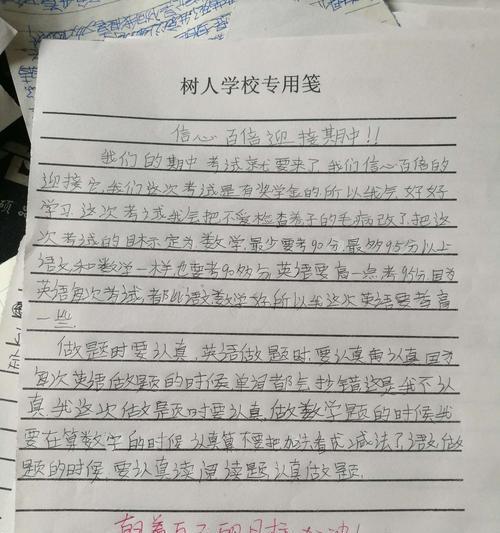 树人学校专用笺
信心百倍迎接期中!!
我们的期中考试就要来了,我们信心百倍的
迎接它,我们这次考试是有奖学金的,所以我会好好
学习,这次考试我会把不爱检查卷子的毛病改了,把这
次考试的目标定为数学最少要考90分,最多95分以上
语文和数学一样也要考90多分,英语要高一点考95分,因为
英语每次考试都比语文数学好,所以我这次英语要考高
一些.
做题时要认真,英语做题时,要认真再认真因为
每次英语做题的时候单词都会抄错这是我不认
真,我这次做题时要认真,做数学题的时候我
要在算数字的时候认真算不要把加法看成减法了,语文做
题的时候,要认真读阅读题,认真做题.
朝着自己的目标加油!